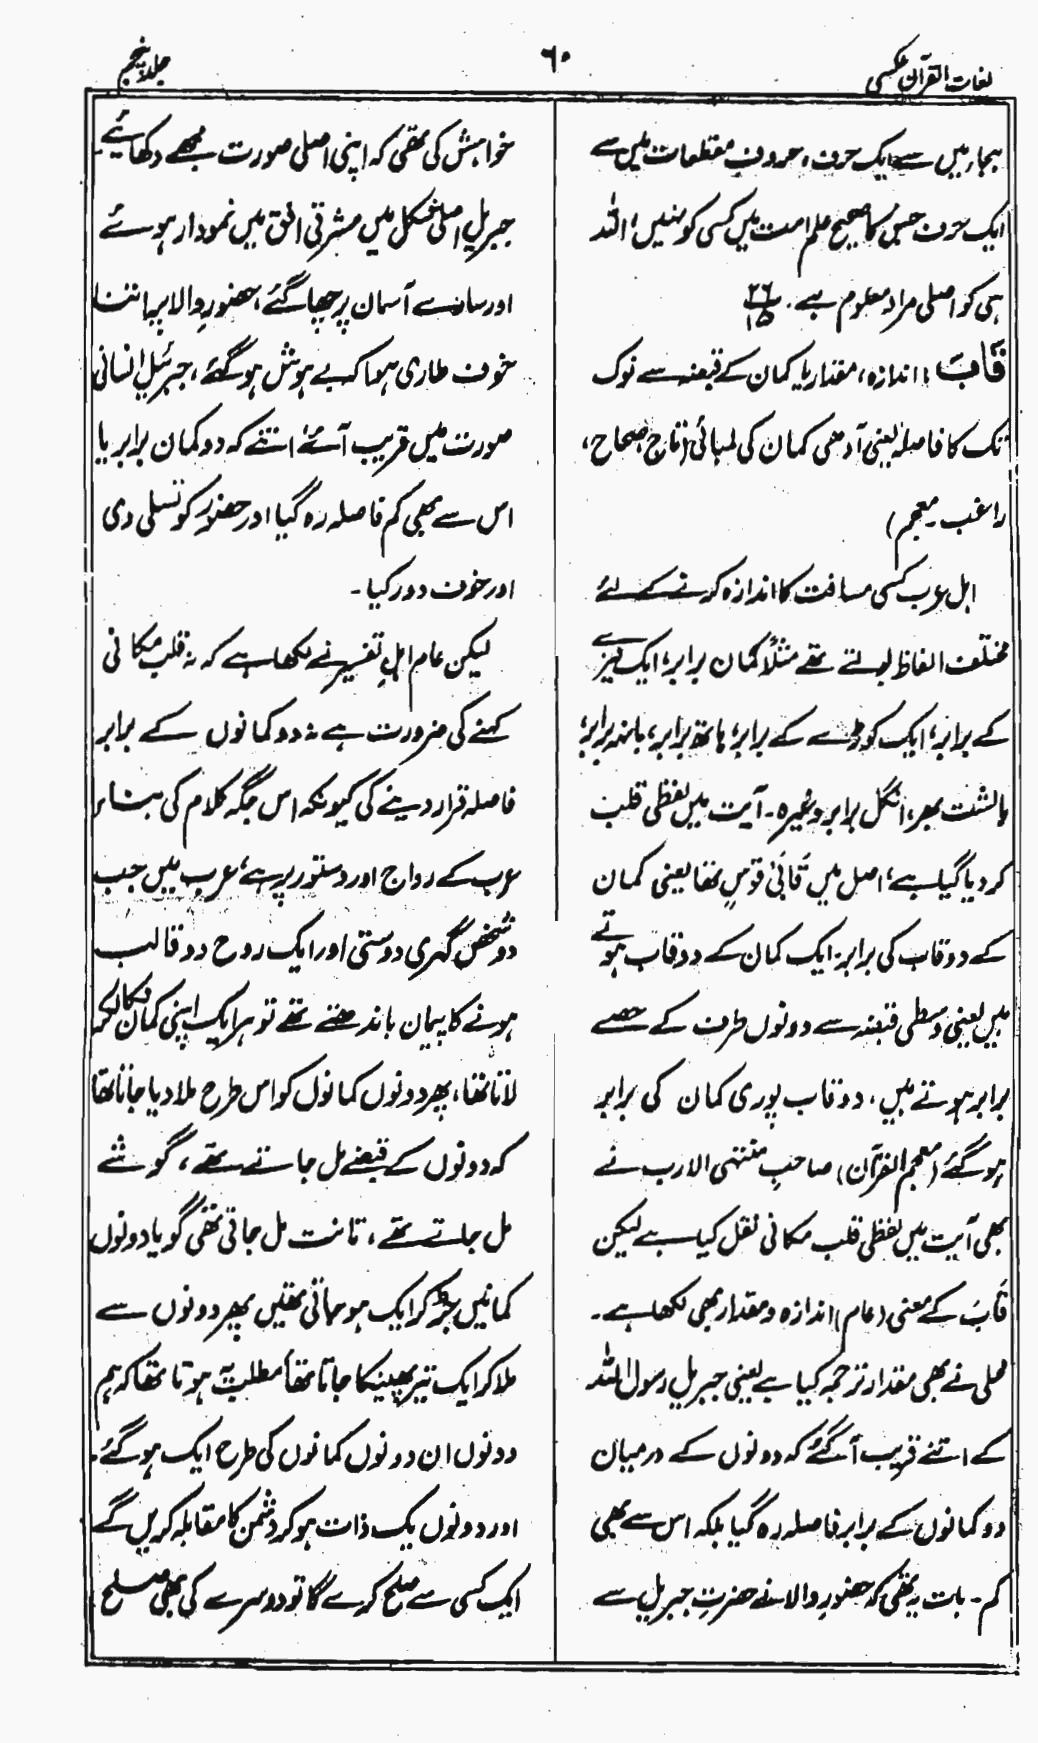 لغات القرآن عکسی
٦٠
جلد پنجم
ہجار میں سے ایک حرف، حروفِ مقطعات میں سے
ایک حرف جس کا صحیح علم امت میں کسی کو نہیں، اللہ
ہی کو اصلی مراد معلوم ہے۔ ۲۶/۱۵
قَابَ: اندازہ، مقدار یا کمان کے قبضہ سے نوک
تک کا فاصلہ یعنی آدھی کمان کی لمبائی (تاج، صحاح،
راغب۔ معجم)
اہل عرب کسی مسافت کا اندازہ کرنے کے لئے
مختلف الفاظ بولتے تھے مثلاً کمان برابر، ایک نیزے
کے برابر، ایک کوڑے کے برابر، ہاتھ برابر، بانہہ برابر،
بالشت بھر، انگل برابر وغیرہ۔ آیت میں لفظی قلب
کر دیا گیا ہے، اصل میں قَابَیْ قَوْسٍ تھا یعنی کمان
کے دو قاب کی برابر۔ ایک کمان کے دو قاب ہوتے
ہیں یعنی وسطی قبضہ سے دونوں طرف کے حصے
برابر ہوتے ہیں، دو قاب پوری کمان کی برابر
ہو گئے (معجم القرآن) صاحبِ منتہی الارب نے
بھی آیت میں لفظی قلب مکانی نقل کیا ہے لیکن
قَابَ کے معنی (عام) اندازہ و مقدار بھی لکھا ہے۔
محلی نے بھی مقدار ترجمہ کیا ہے یعنی جبریل رسول اللہ
کے اتنے قریب آ گئے کہ دونوں کے درمیان
دو کمانوں کے برابر فاصلہ رہ گیا بلکہ اس سے بھی
کم۔ بات یہ تھی کہ حضورِ والا نے حضرت جبریل سے
خواہش کی تھی کہ اپنی اصلی صورت مجھے دکھائیے۔
جبریل اصلی شکل میں مشرقی افق میں نمودار ہوئے
اور سارے آسمان پر چھا گئے، حضورِ والا پر اتنا
خوف طاری ہوا کہ بے ہوش ہو گئے، جبرئیل انسانی
صورت میں قریب آئے، اتنے کہ دو کمان برابر یا
اس سے بھی کم فاصلہ رہ گیا اور حضور کو تسلی دی
اور خوف دور کیا۔
لیکن عام اہلِ تفسیر نے لکھا ہے کہ نہ قلب مکانی
کہنے کی ضرورت ہے نہ دو کمانوں کے برابر
فاصلہ قرار دینے کی کیونکہ اس جگہ کلام کی بناء
عرب کے رواج اور دستور پر ہے، عرب میں جب
دو شخص گہری دوستی اور ایک روح دو قالب
ہونے کا پیمان باندھتے تھے تو ہر ایک اپنی کمان نکال کر
لاتا تھا، پھر دونوں کمانوں کو اس طرح ملا دیا جاتا تھا
کہ دونوں کے قبضے مل جاتے تھے، گوشے
مل جاتے تھے، تانت مل جاتی تھی گویا دونوں
کمانیں جڑ کر ایک ہو جاتی تھیں پھر دونوں سے
ملا کر ایک تیر پھینکا جاتا تھا مطلب یہ ہوتا تھا کہ ہم
دونوں ان دونوں کمانوں کی طرح ایک ہو گئے۔
اور دونوں یک ذات ہو کر دشمن کا مقابلہ کریں گے
ایک کسی سے صلح کرے گا تو دوسرے کی بھی صلح